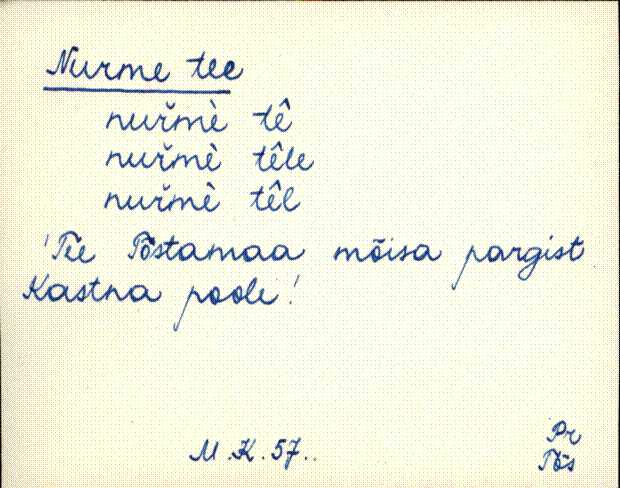 Nurme tee
nuřmè tê
nuřmè têle
nuřmè têl
'Tee Põstamaa mõisa pargist
Kastna poole!
M.K.57..
Pr
Põs